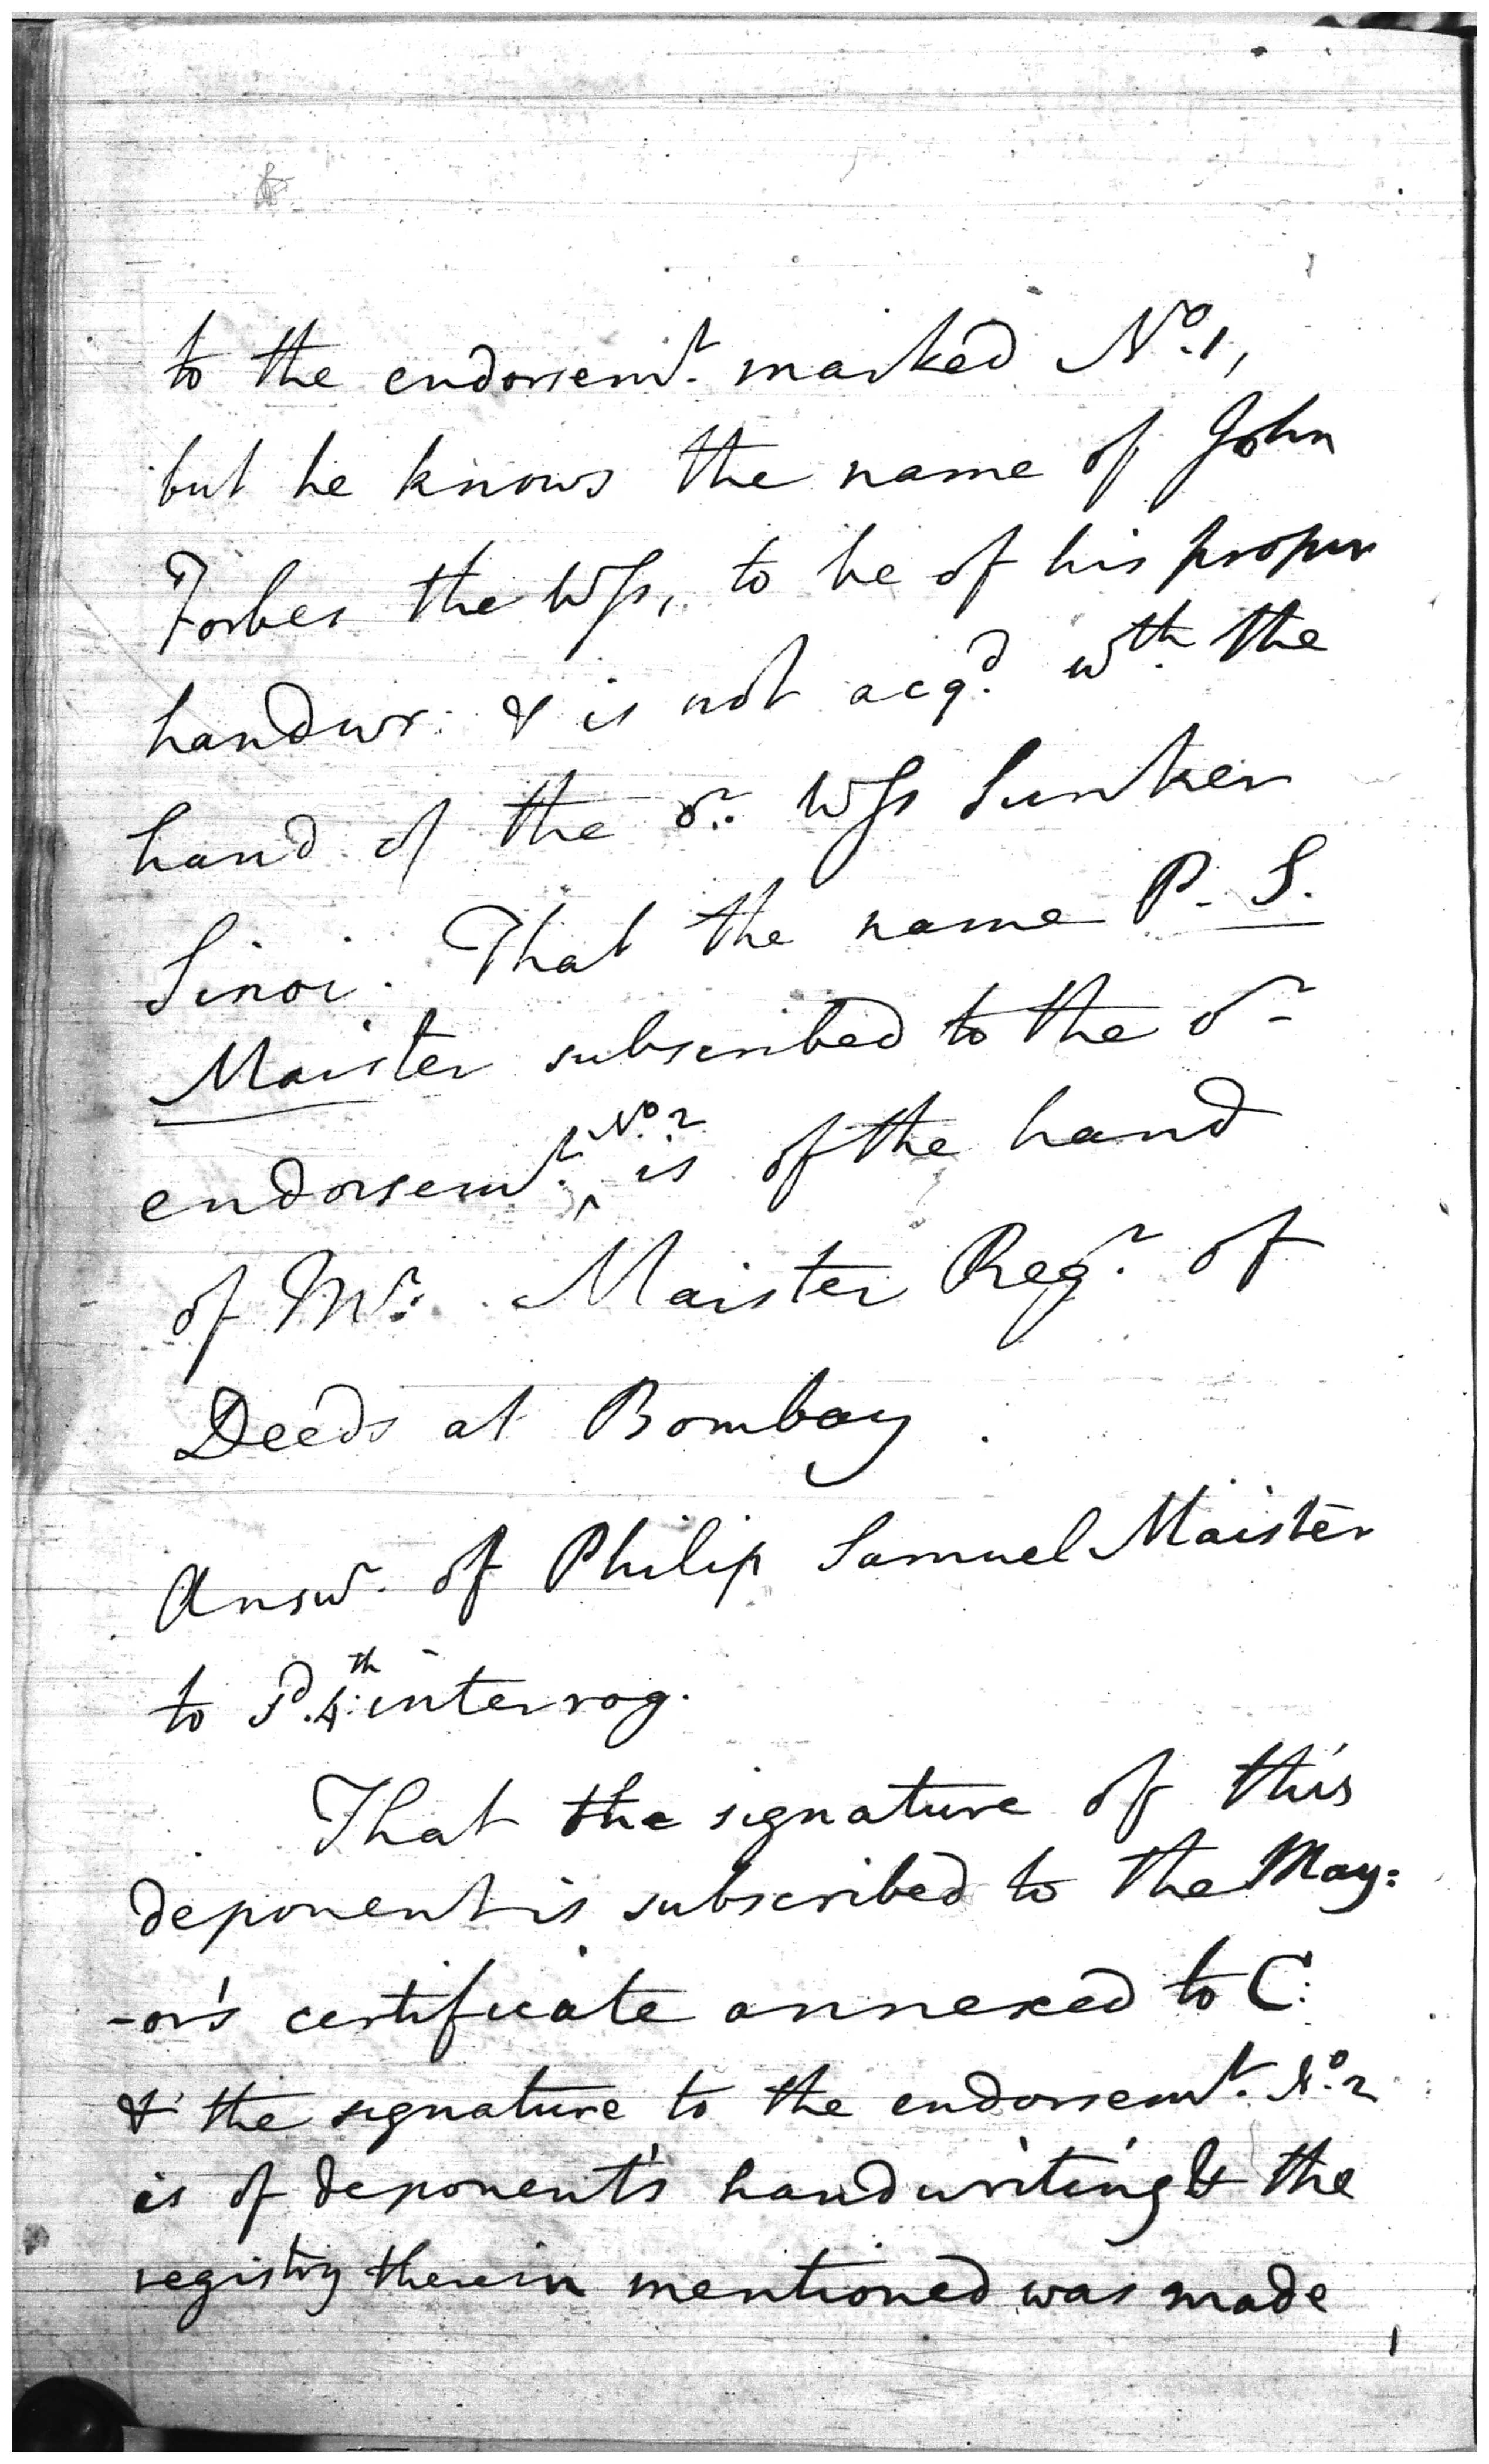 to the endorsemt. marked No. 1,
but he knows the name of John
Forbes the Wss, to be of his proper
handwr: & is not acqd. wth the
hand of the or. Wss Sunker
Sinoi. That the name P. S.
Maister subscribed to the or
endorsemt. No. 2 is of the hand
of Mr. Maister Regr. of
Deeds at Bombay
Answr. of Philip Samuel Maister
to Pd. 4th interrog.
That the signature of this
deponent is subscribed to the May:
-or's certificate annexed to C:
& the signature to the endorsemt. No. 2
is of deponent's handwriting & the
registry therein mentioned was made